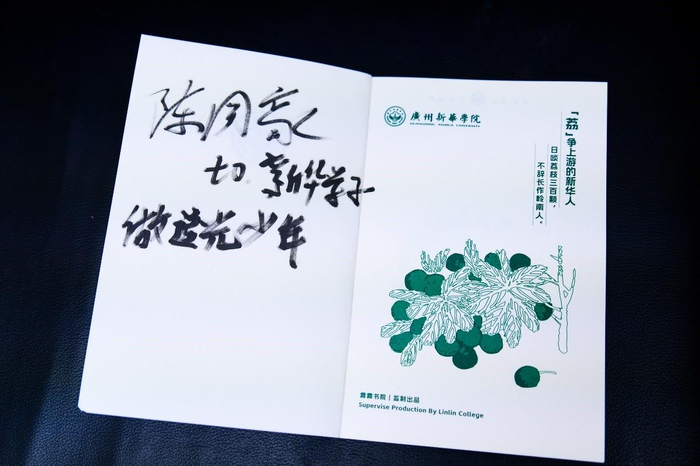 陈
to. 新华学子
做追光少年
廣州新華學院
GUANGZHOU XINHUA UNIVERSITY
「荔」争上游的新华人
日啖荔枝三百颗，
不辞长作岭南人。
霖霖书院 | 监制出品
Supervise Production By Linlin College